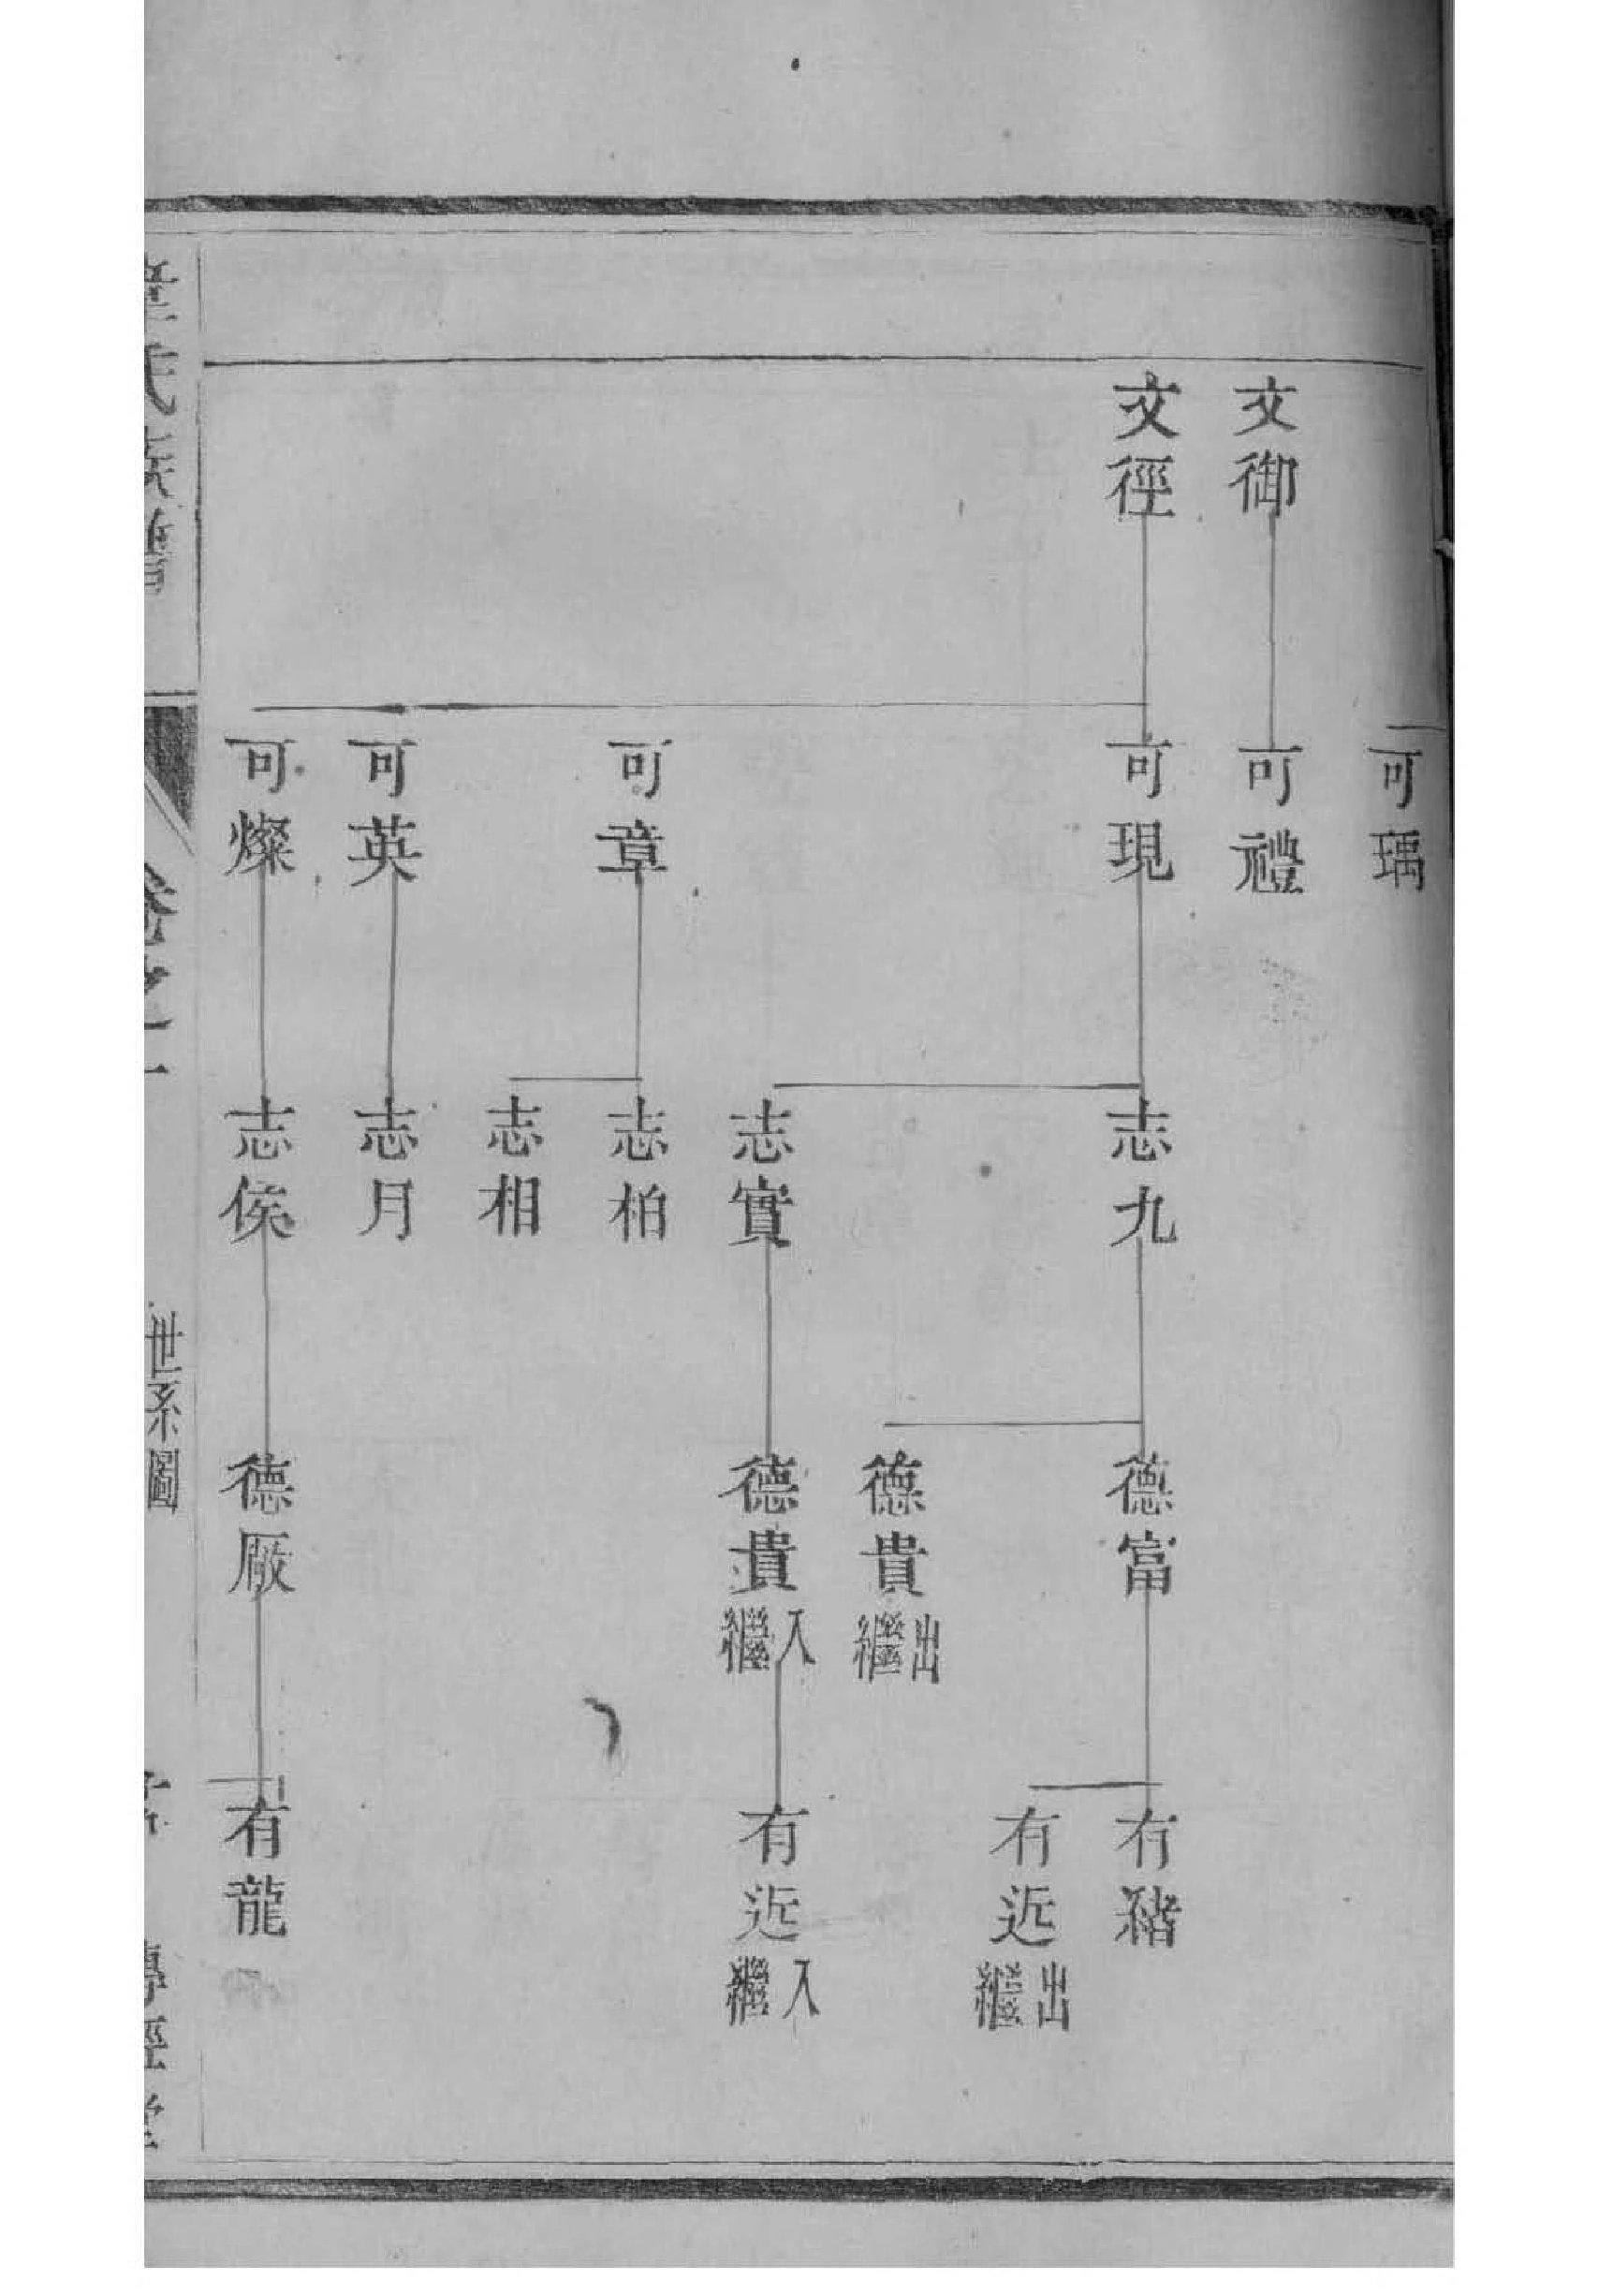 文御
文徑
可瑀
可禮
可現
可章
可英
可燦
志九
志實
志柏
志相
志月
志侯
德富
德貴出繼
德貴入繼
德厰
有豬
有近出繼
有近入繼
有龍
氏族譜
卷之一
世系圖